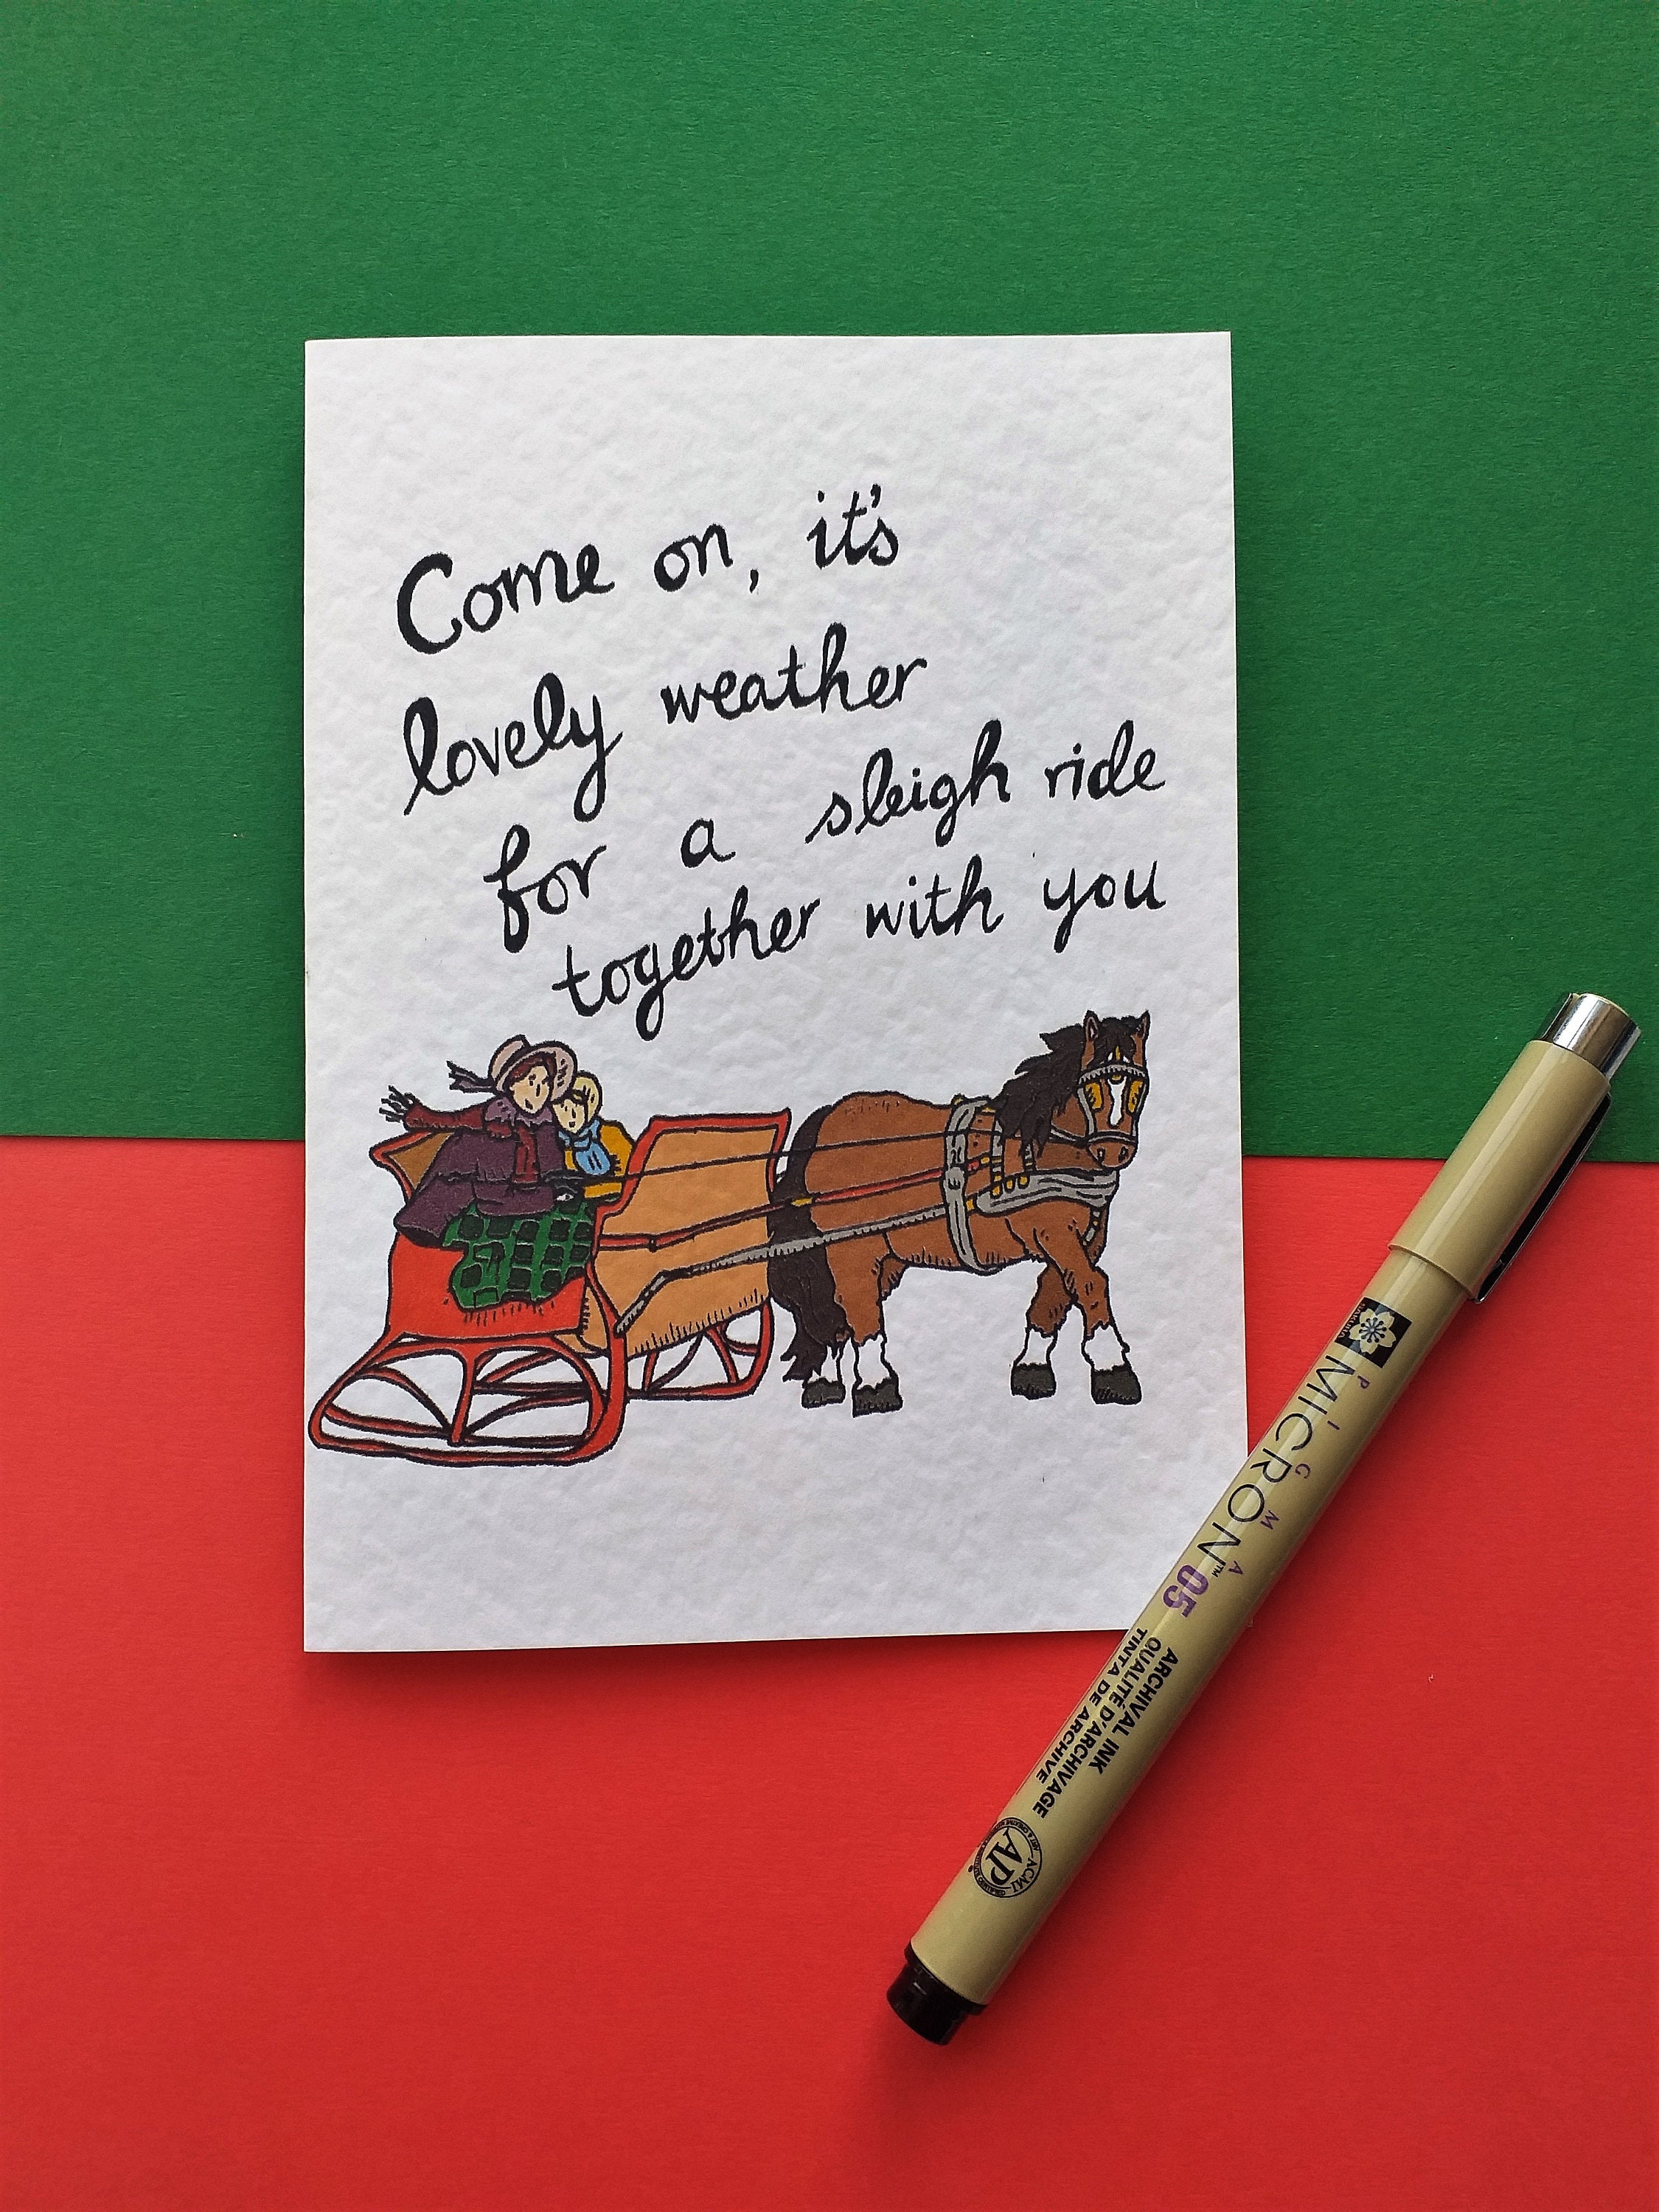 Come on, it's
lovely weather
for a sleigh ride
together with you
PIGMA
MICRON™ 05
ARCHIVAL INK
QUALITÉ D'ARCHIVAGE
TINTA DE ARCHIVE
AP
ACMI